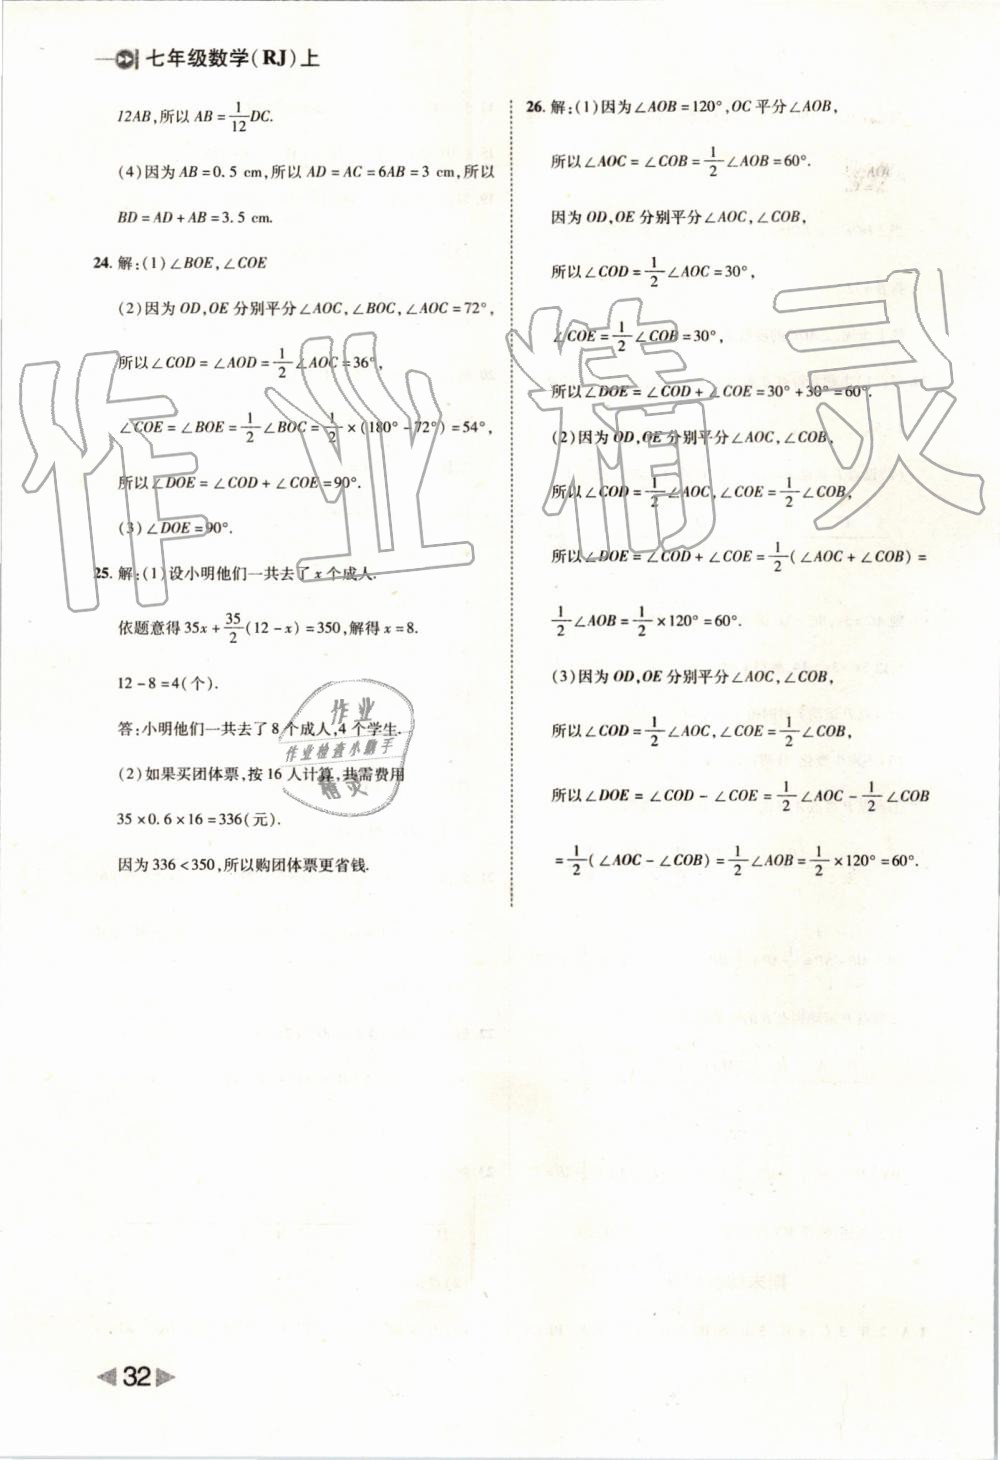 七年级数学(RJ)上
12AB,所以 AB = 1/12 DC.
(4)因为 AB = 0.5 cm,所以 AD = AC = 6AB = 3 cm,所以
BD = AD + AB = 3.5 cm.
24. 解:(1)∠BOE,∠COE
(2)因为 OD,OE 分别平分∠AOC,∠BOC,∠AOC = 72°,
所以∠COD = ∠AOD = 1/2 ∠AOC = 36°,
∠COE = ∠BOE = 1/2 ∠BOC = 1/2 × (180° - 72°) = 54°,
所以∠DOE = ∠COD + ∠COE = 90°.
(3)∠DOE = 90°.
25. 解:(1)设小明他们一共去了 x 个成人.
依题意得 35x + 35/2 (12 - x) = 350,解得 x = 8.
12 - 8 = 4(个).
答:小明他们一共去了 8 个成人,4 个学生.
(2)如果买团体票,按 16 人计算,共需费用
35 × 0.6 × 16 = 336(元).
因为 336 < 350,所以购团体票更省钱.
26. 解:(1)因为∠AOB = 120°,OC 平分∠AOB,
所以∠AOC = ∠COB = 1/2 ∠AOB = 60°.
因为 OD,OE 分别平分∠AOC,∠COB,
所以∠COD = 1/2 ∠AOC = 30°,
∠COE = 1/2 ∠COB = 30°,
所以∠DOE = ∠COD + ∠COE = 30° + 30° = 60°.
(2)因为 OD,OE 分别平分∠AOC,∠COB,
所以∠COD = 1/2 ∠AOC,∠COE = 1/2 ∠COB,
所以∠DOE = ∠COD + ∠COE = 1/2 (∠AOC + ∠COB) =
1/2 ∠AOB = 1/2 × 120° = 60°.
(3)因为 OD,OE 分别平分∠AOC,∠COB,
所以∠COD = 1/2 ∠AOC,∠COE = 1/2 ∠COB,
所以∠DOE = ∠COD - ∠COE = 1/2 ∠AOC - 1/2 ∠COB
= 1/2 (∠AOC - ∠COB) = 1/2 ∠AOB = 1/2 × 120° = 60°.
作业精灵
作业
作业检查小助手
精灵
32